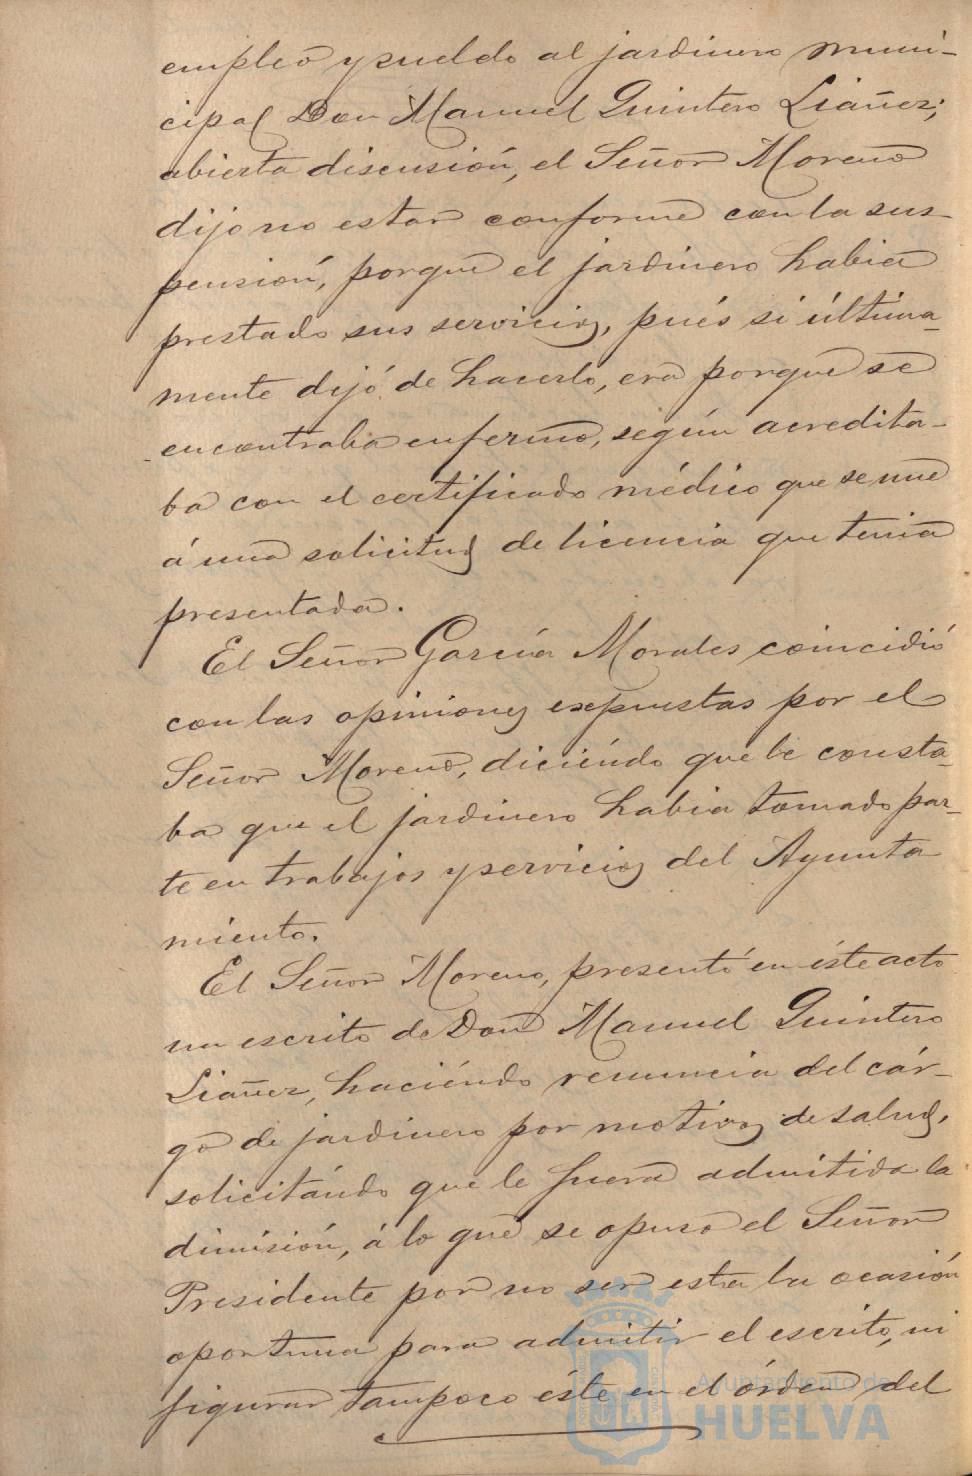 empleo y sueldo al jardinero muni-
cipal Don Manuel Quintero Liáñez;
abierta discusión, el Señor Moreno
dijo no estar conforme con la sus-
pensión, porque el jardinero habia
prestado sus servicios, pués si última-
mente dejó de hacerlo, era porque se
encontraba enfermo, según acredita-
ba con el certificado médico que se une
á una solicitud de licencia que tenia
presentada.
El Señor García Morales coincidió
con las opiniones expuestas por el
Señor Moreno, diciéndo que le consta-
ba que el jardinero habia tomado par-
te en trabajos y servicios del Ayunta
miento.
El Señor Moreno, presentó en éste acto
un escrito de Don Manuel Quintero
Liañez, haciéndo renuncia del cár-
go de jardinero por motivos de salud,
solicitándo que le fuera admitida la
dimisión, á lo que se opuso el Señor
Presidente por no ser esta la ocasión
oportuna para admitir el escrito, ni
figurar tampoco éste en el órden del
Ayuntamiento de
HUELVA